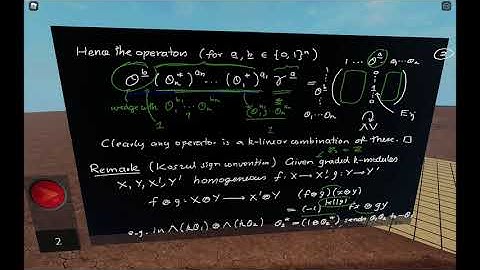 Hence the operators (for a, b ∈ {0,1}ⁿ) ②
1 ... θᵃ θ₁...θₙ
θᵇ (θₙ*)^{aₙ} ... (θ₁*)^{a₁} γᵃ =
wedge with θ₁^{b₁} ... θₙ^{bₙ}
1 2 θ₁...θₙ
∧V
Clearly any operator is a k-linear combination of these. □
Remark (Koszul sign convention) Given graded k-modules
X, Y, X', Y' homogeneous f: X → X', g: Y → Y'
f ⊗ g : X ⊗ Y → X' ⊗ Y' (f ⊗ g)(x ⊗ y)
= (-1)^{|x||g|} fx ⊗ gy
e.g. in ∧(kθ₁) ⊗ ∧(kθ₂) θ₂* = (1 ⊗ θ₂*), sends θ₁θ₂ to -θ₁
2